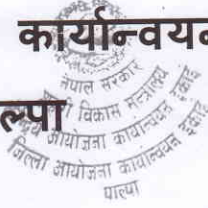 कार्यान्वयन
ल्पा
नेपाल सरकार
शहरी विकास मन्त्रालय
आयोजना कार्यान्वयन इकाई
जिल्ला आयोजना कार्यान्वयन इकाई
पाल्पा